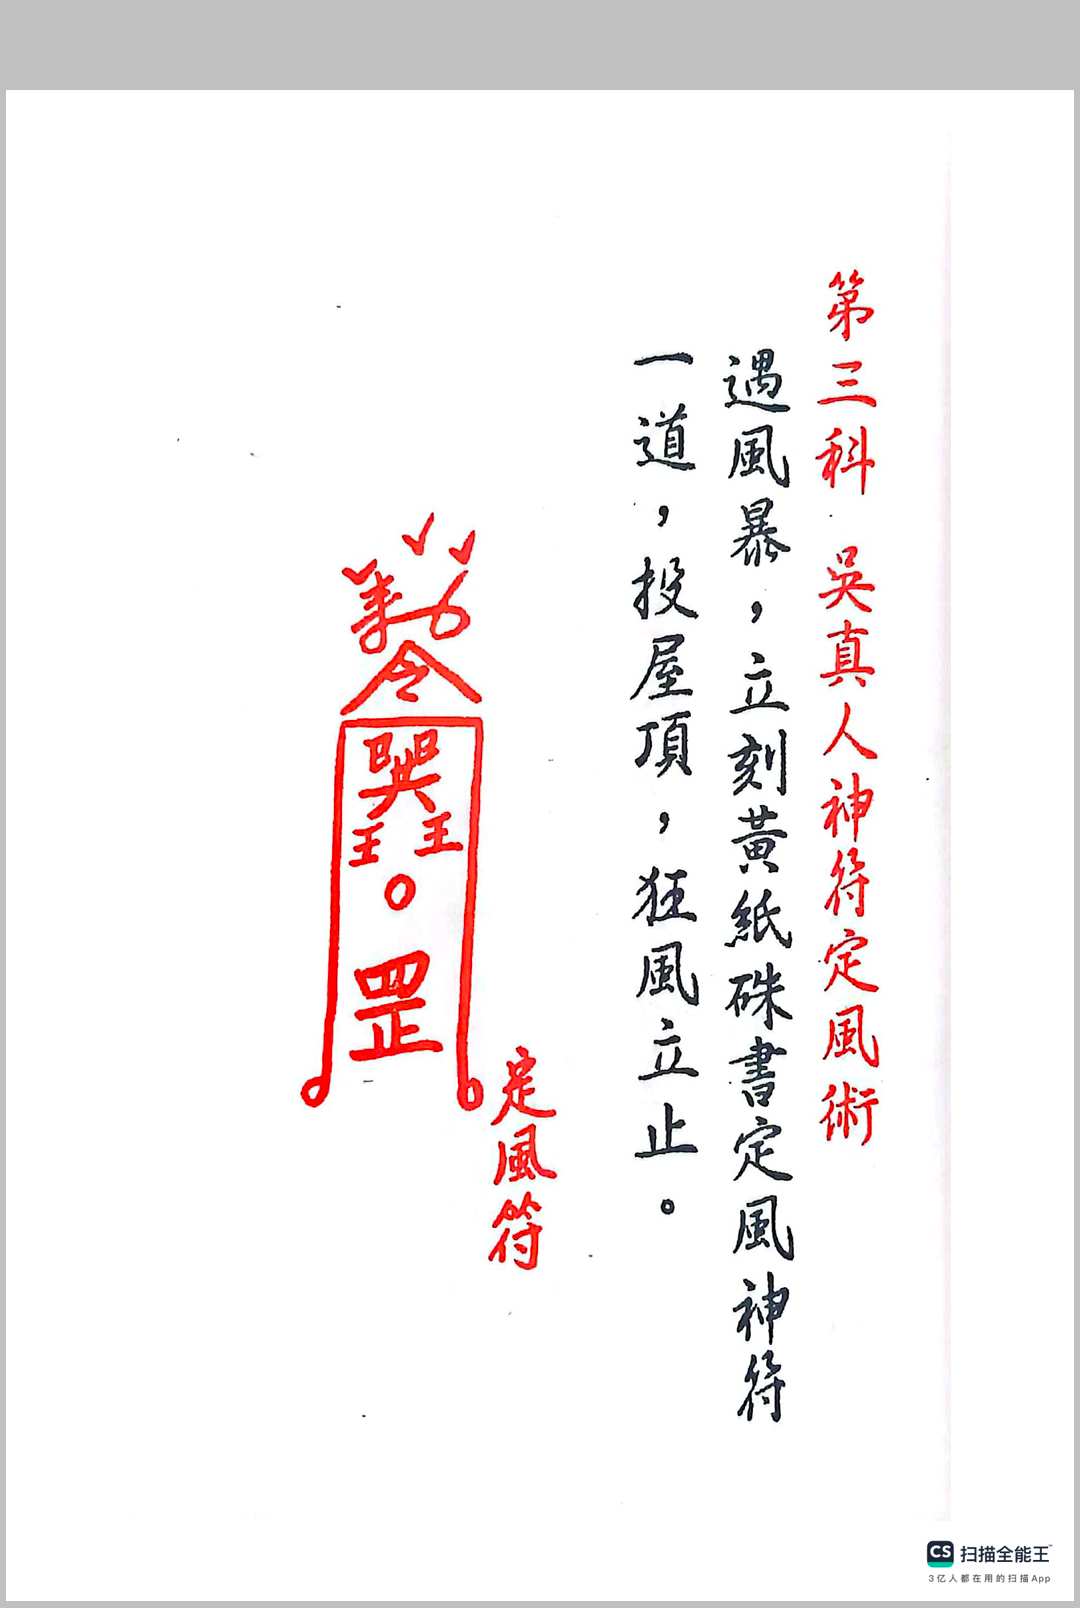 第三科 吳真人神符定風術
遇風暴，立刻黃紙硃書定風神符
一道，投屋頂，狂風立止。
定風符
令
王 王
罡
CS 扫描全能王
3亿人都在用的扫描App